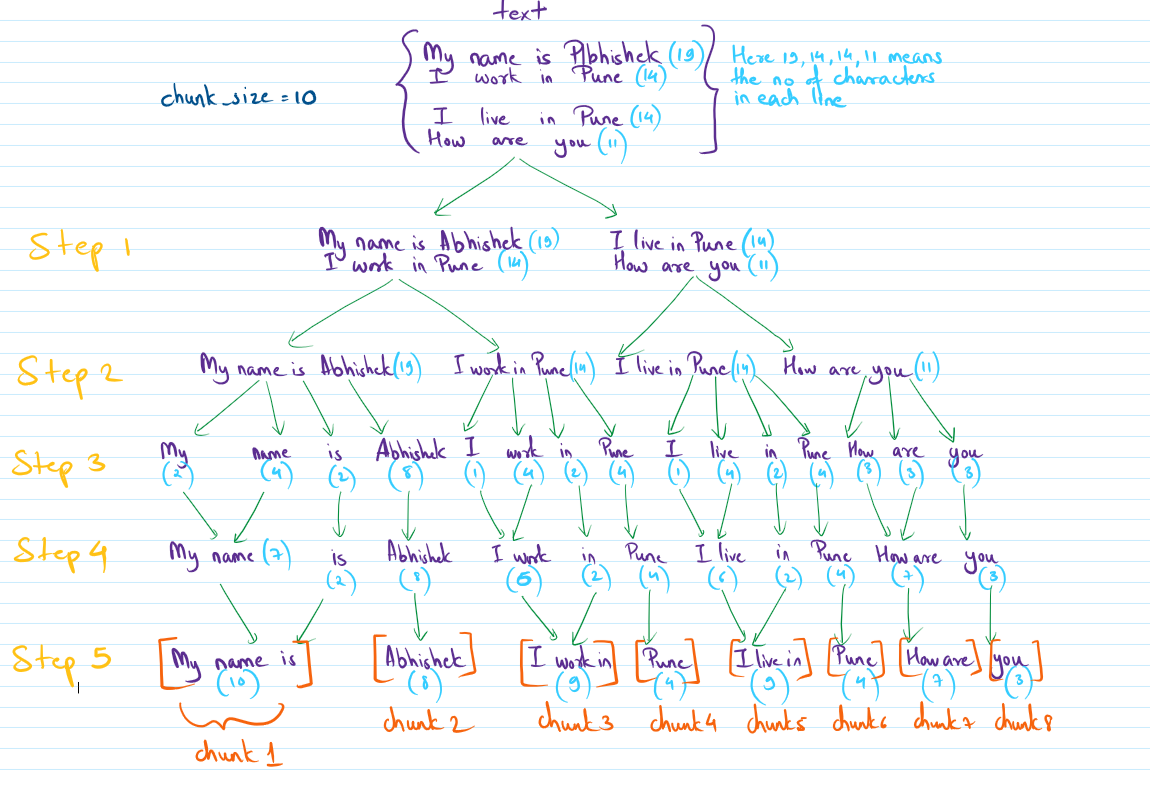 text
My name is Abhishek (19)
I work in Pune (14)
I live in Pune (14)
How are you (11)
Here 19, 14, 14, 11 means
the no of characters
in each line
chunk_size = 10
Step 1
My name is Abhishek (19)
I work in Pune (14)
I live in Pune (14)
How are you (11)
Step 2
My name is Abhishek (19) I work in Pune (14) I live in Pune (14) How are you (11)
Step 3
My name is Abhishek I work in Pune I live in Pune How are you
(2) (4) (2) (8) (1) (4) (2) (4) (1) (4) (2) (4) (3) (3) (3)
Step 4
My name (7) is Abhishek I work in Pune I live in Pune How are you
(2) (8) (6) (2) (4) (6) (2) (4) (7) (3)
Step 5
[My name is] [Abhishek] [I work in] [Pune] [I live in] [Pune] [How are] [you]
(10) (8) (9) (4) (9) (4) (7) (3)
chunk 1
chunk 2 chunk 3 chunk 4 chunk 5 chunk 6 chunk 7 chunk 8